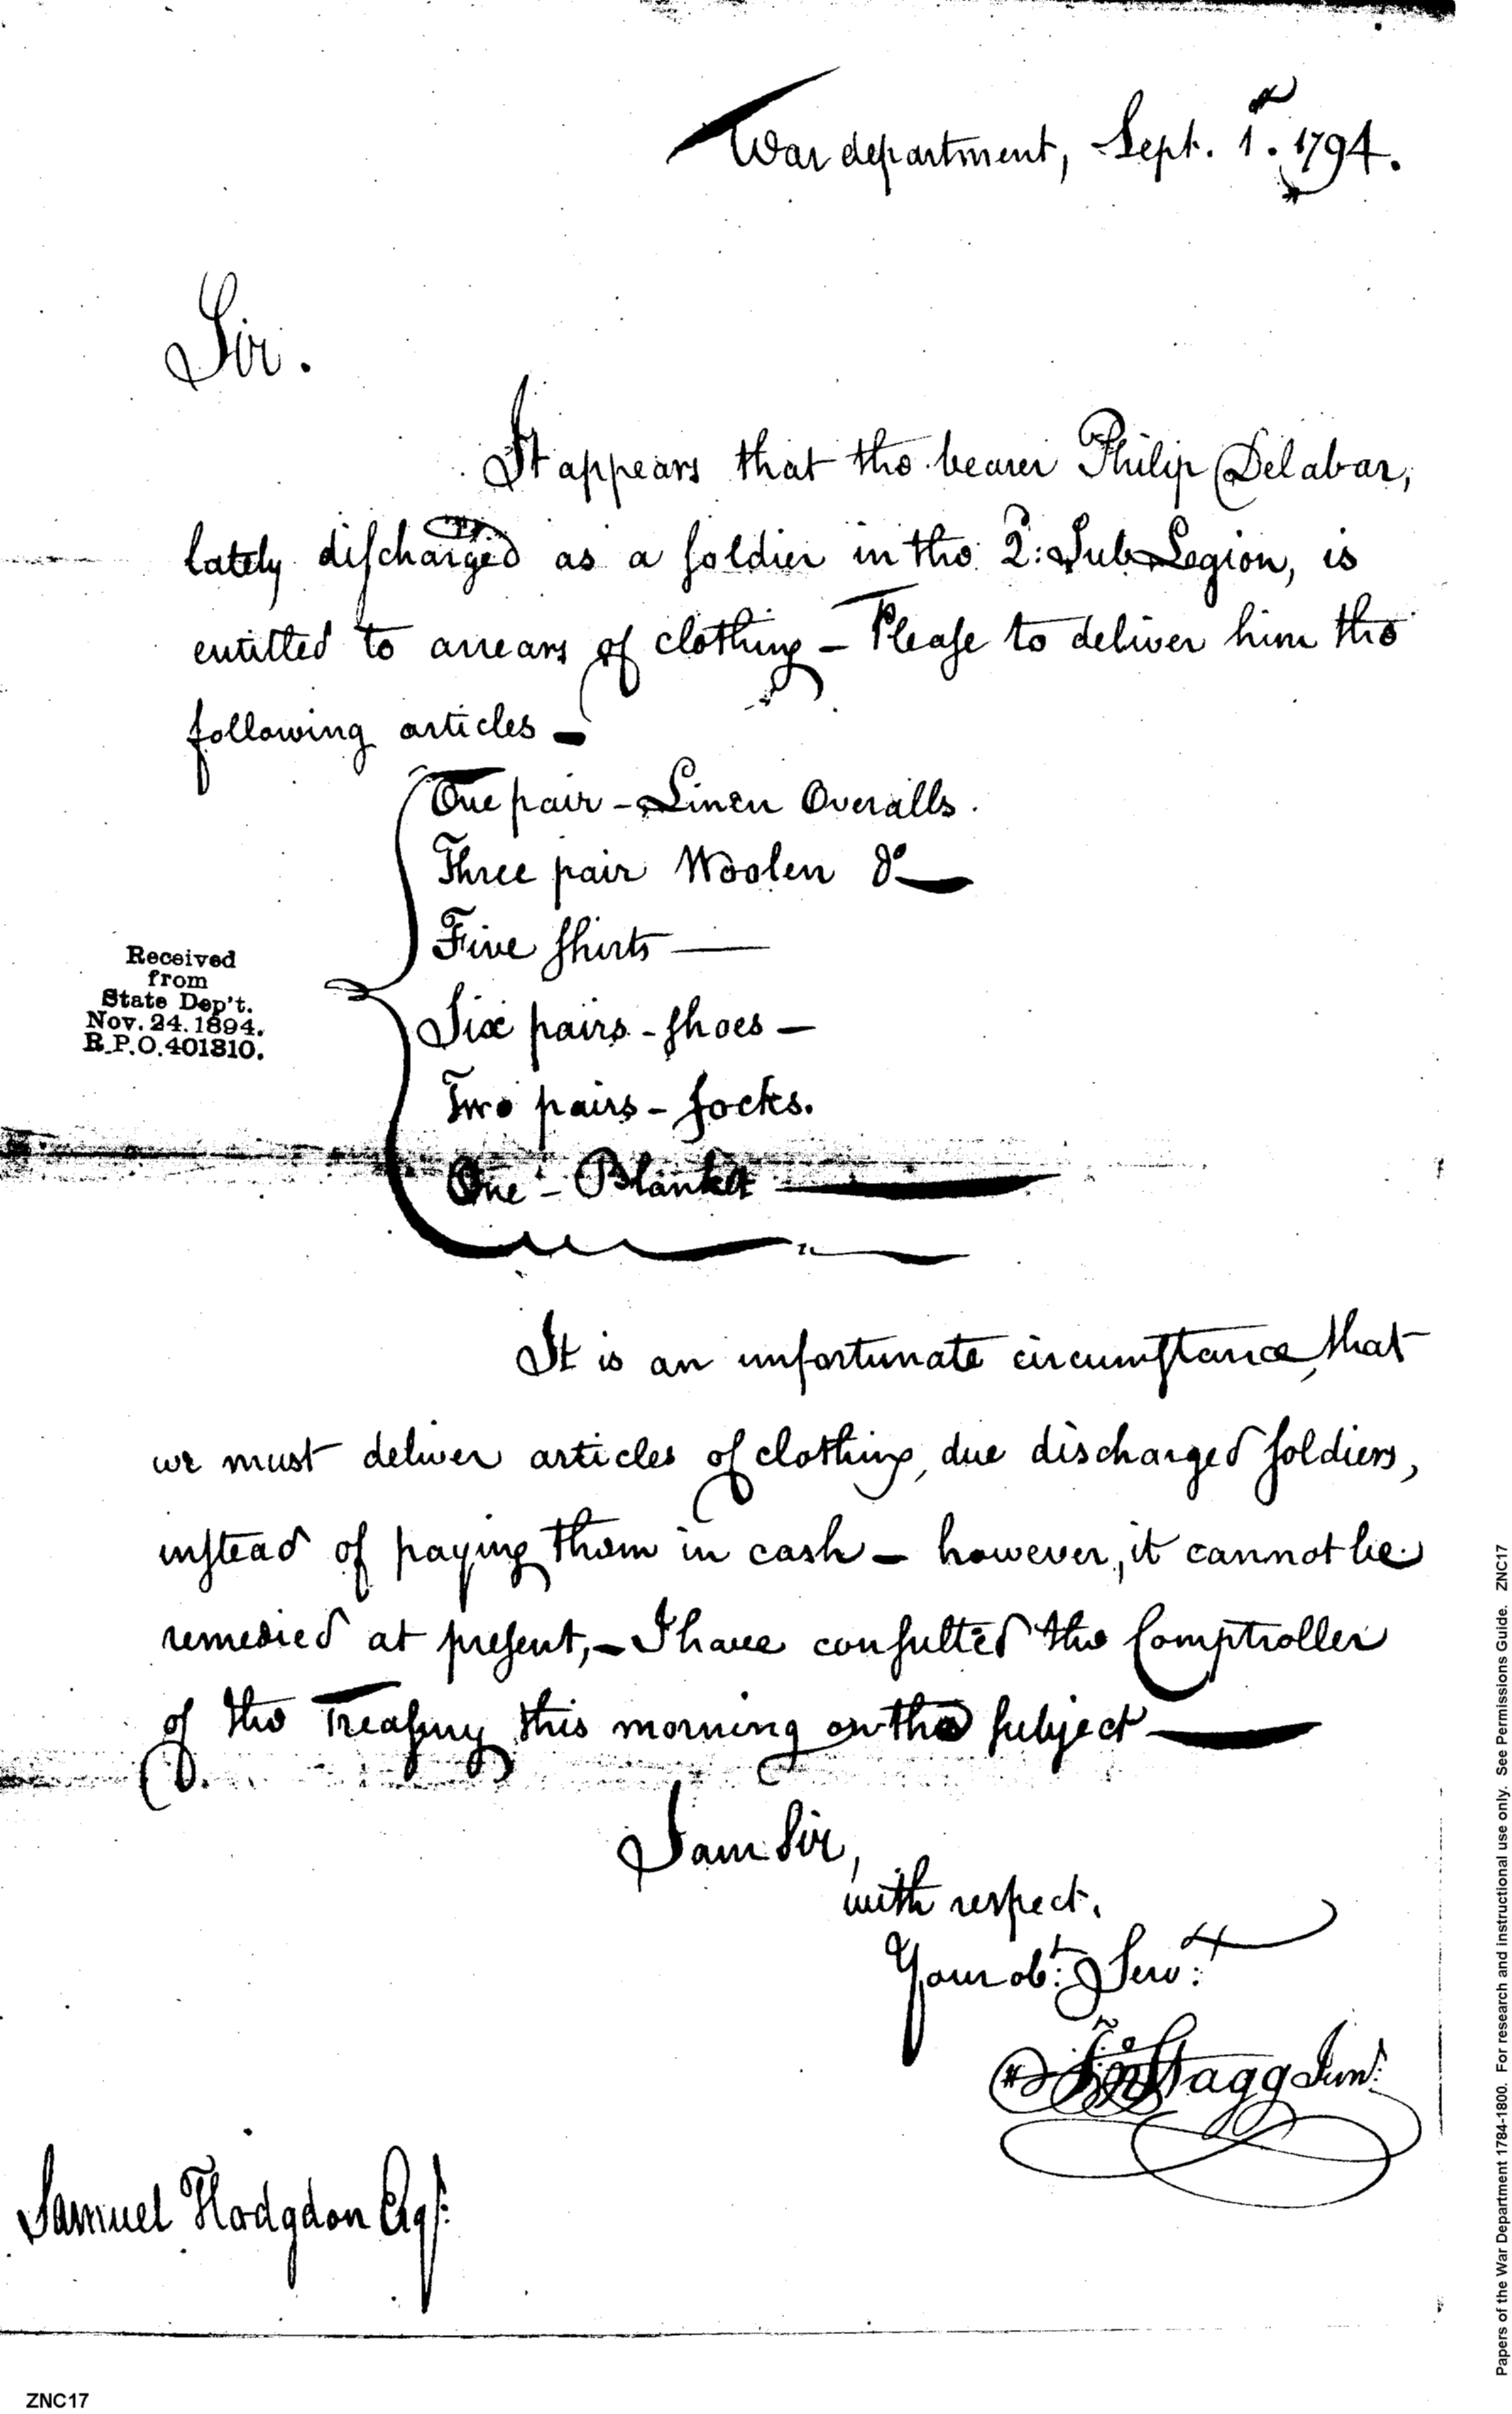 War department, Sept. 1. 1794.
Sir.
It appears that the bearer Philip Delabar,
lately discharged as a soldier in the 2: Sub Legion, is
entitled to arrears of clothing — Please to deliver him the
following articles —
One pair - Linen Overalls.
Three pair Woolen do —
Five shirts —
Six pairs - shoes —
Two pairs - socks.
One - Blanket —
Received
from
State Dep't.
Nov. 24. 1894.
R.P.O. 401810.
It is an unfortunate circumstance, that
we must deliver articles of clothing, due discharged soldiers,
instead of paying them in cash — however, it cannot be
remedied at present, — I have consulted the Comptroller
of the Treasury this morning on the subject —
I am Sir,
with respect.
Your obt: Servt:
Jno Stagg Junr.
Samuel Hodgdon Esqr:
ZNC17
Papers of the War Department 1784-1800. For research and instructional use only. See Permissions Guide. ZNC17